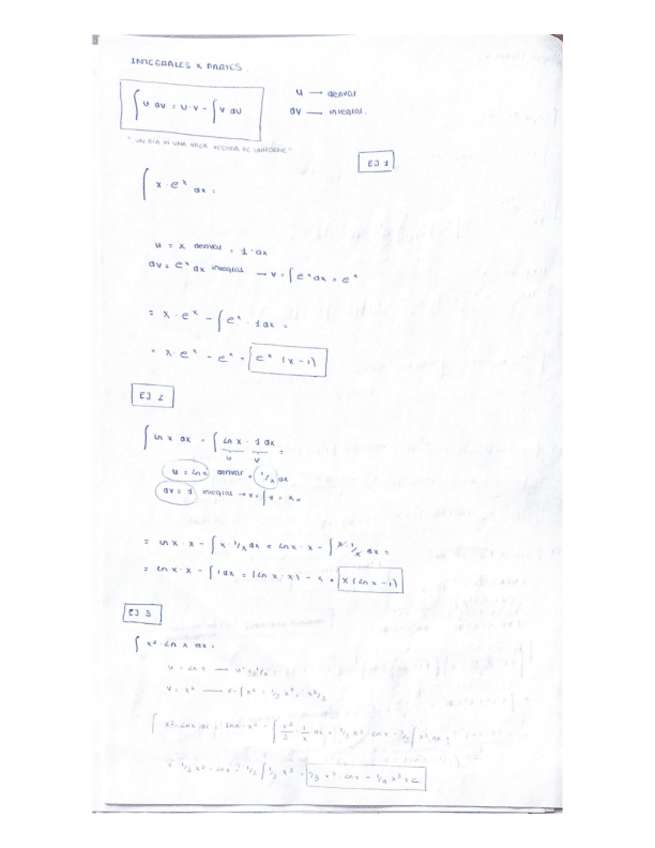 INTEGRALES X PARTES.
∫ u dv = u·v - ∫ v du
u → derivar
dv — integral.
"UN DIA VI UNA VACA VESTIDA DE UNIFORME"
EJ 1
∫ x · eˣ dx =
u = x derivar = 1·dx
dv = eˣ dx integral → v = ∫ eˣ dx = eˣ
= x · eˣ - ∫ eˣ · 1 dx =
= x · eˣ - eˣ = eˣ (x - 1)
EJ 2
∫ ln x dx = ∫ ln x · 1 dx =
u v
u = ln x derivar = 1/x dx
dv = 1 integral → v = ∫ 1 = x
= ln x · x - ∫ x · 1/x dx = ln x · x - ∫ x · 1/x dx =
= ln x · x - ∫ 1 dx = (ln x · x) - x = x (ln x - 1)
EJ 3
∫ x² · ln x dx =
u = ln x → u' = 1/x
v = x² → v = ∫ x² = 1/3 x³ = x³/3